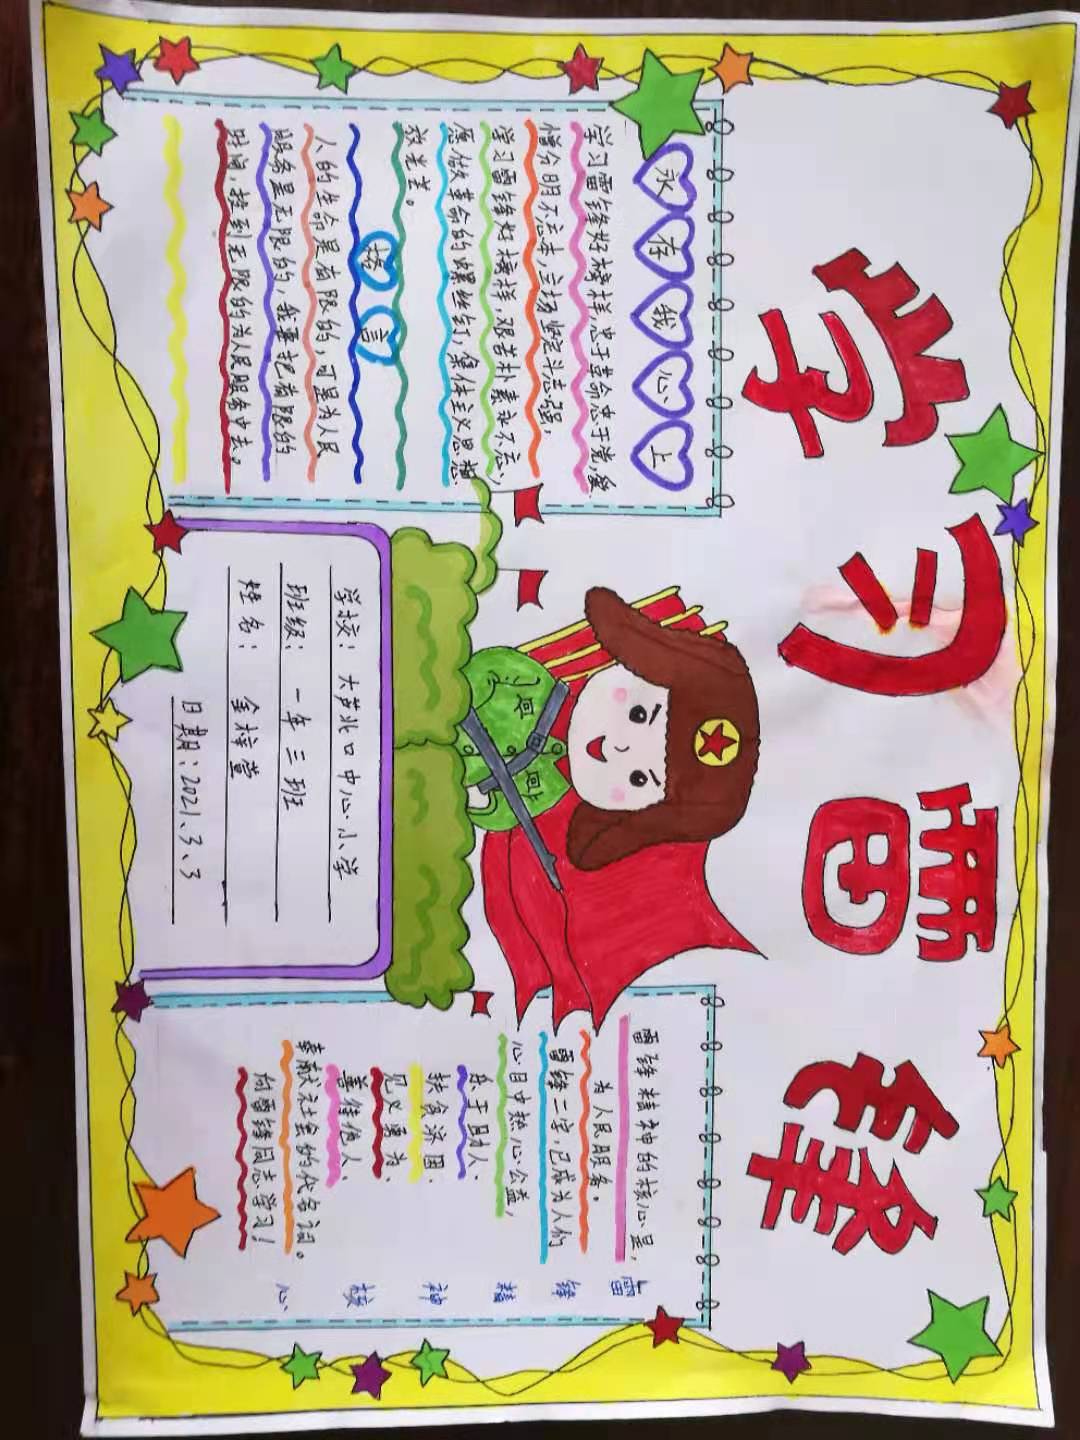 学习雷锋
永存我心上
学习雷锋好榜样,忠于革命忠于党,爱
憎分明不忘本,立场坚定斗志强,
学习雷锋好榜样,艰苦朴素永不忘,
愿做革命的螺丝钉,集体主义思想
放光芒。
格言
人的生命是有限的,可是为人民
服务是无限的,我要把有限的
时间,投到无限的为人民服务中去。
学校:大芦北口中心小学
班级:一年三班
姓名:
日期:2021、3、3
雷锋精神的核心是,
为人民服务。
雷锋二字,已成为人们
心目中热心公益,
乐于助人、
扶贫济困、
见义勇为、
善待他人、
奉献社会的代名词。
向雷锋同志学习!
雷锋精神核心